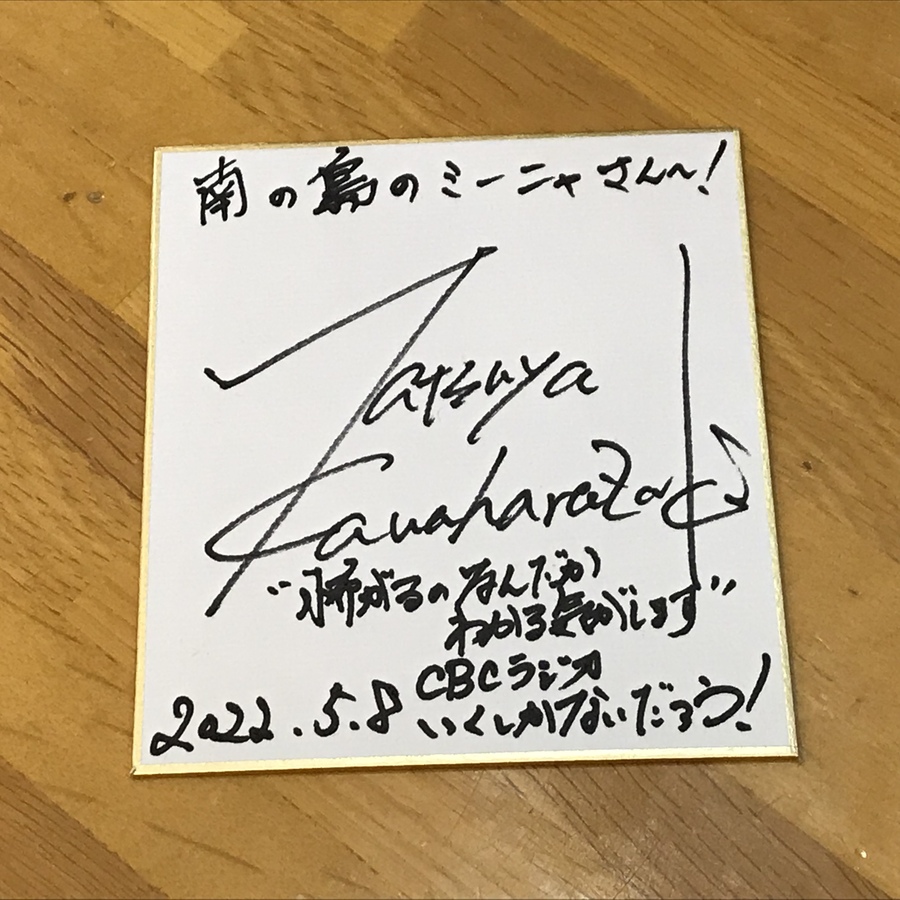 南の島のミーニャさん〜!
Tatsuya
がるの なんだか
わかる気がします”
CBCラジオ
2022.5.8 いくしかないだろう!